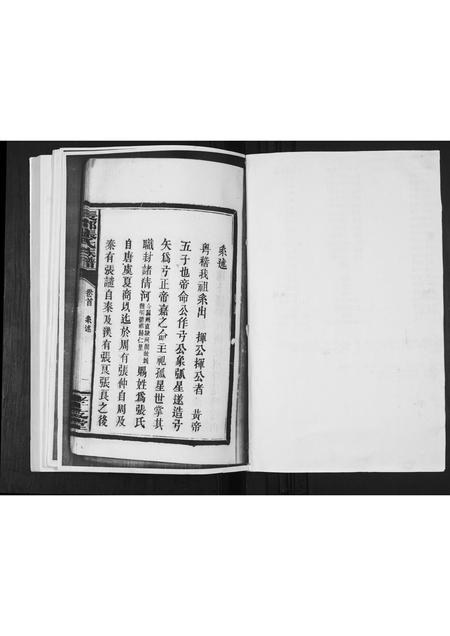 系述
粵稽我祖系出　揮公揮公者　黃帝
五子也帝命公作弓公象弧星遂造弓
矢為弓正帝嘉之命主祀孤星世掌其
職封諸倩河賜姓為張氏
自唐虞夏商以迄於周有張仲自周及
秦有張譴自秦及漢有張良張良之後
卷首　系述